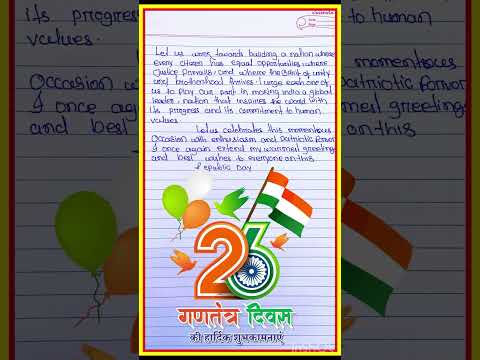 Let us work towards building a nation where
every citizen has equal opportunities, where
Justice prevails, and where the spirit of unity
and brotherhood thrives. I urge each one of
us to play our part in making india a global
leader, nation that inspires the world with
its progress and its commitment to human
values.
Let us celebrates this momentous
Occasion with enthusiasm and Patriotic fervor
I once again extend my warmest greetings
and best wishes to everyone on this
Republic Day
26
गणतंत्र दिवस
की हार्दिक शुभकामनाएं